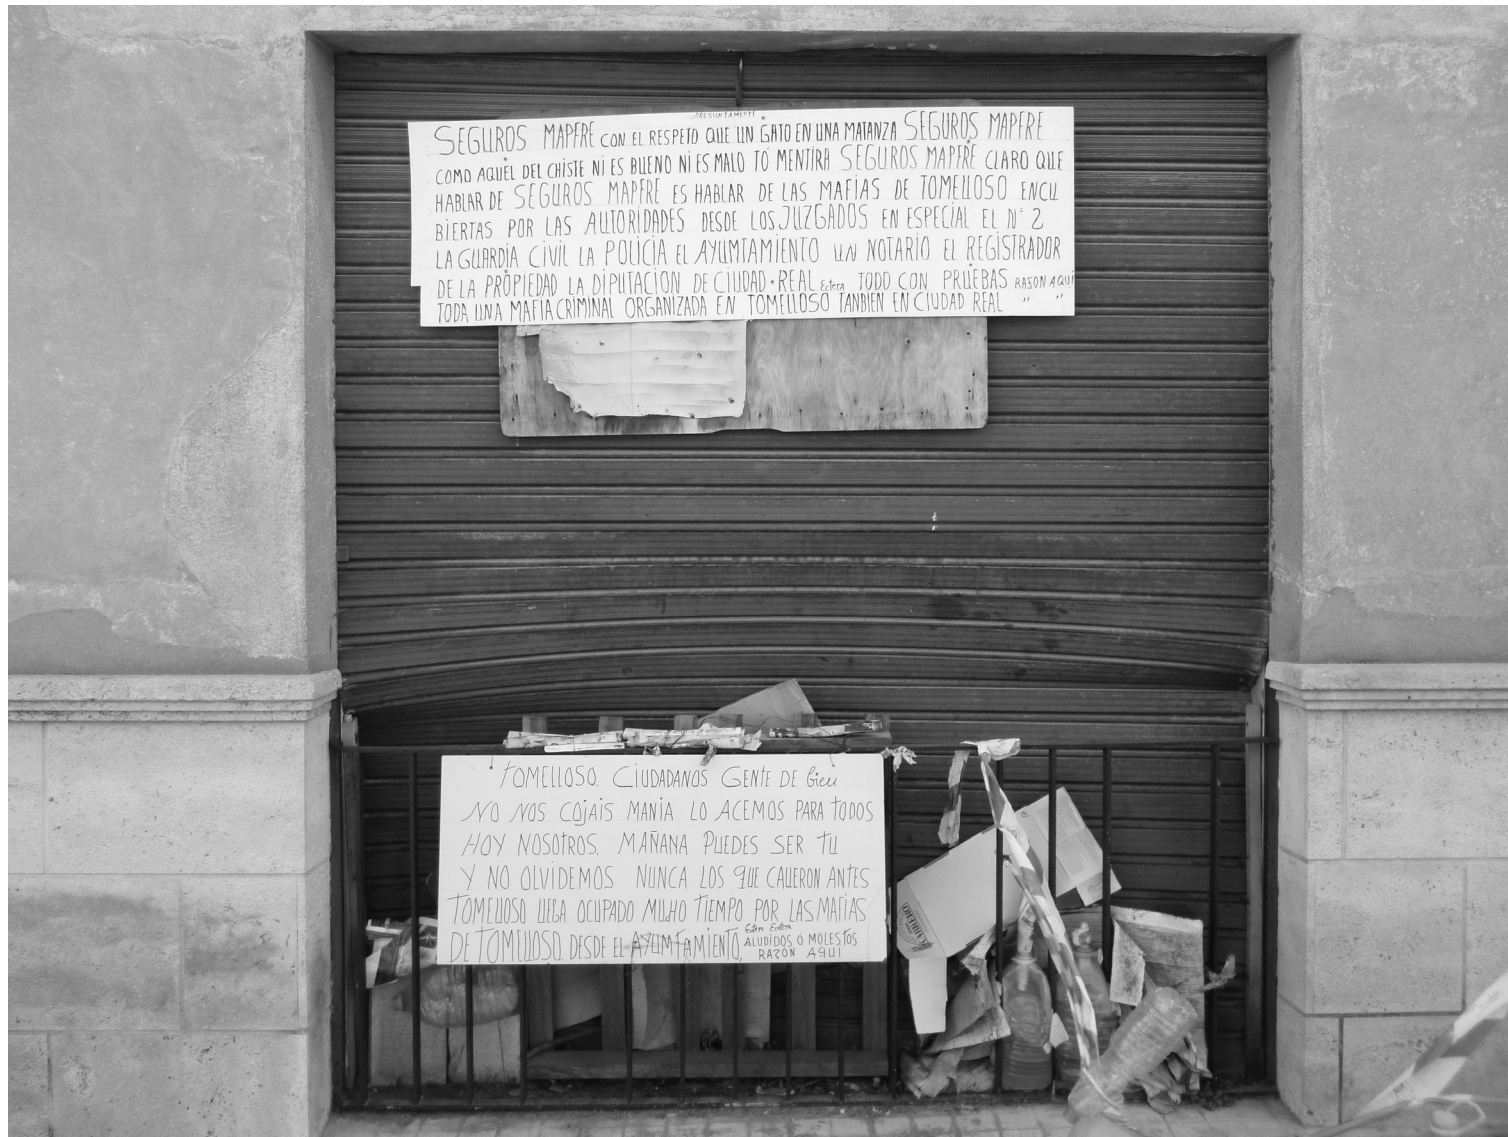 PRESUNTAMENTE
SEGUROS MAPFRE CON EL RESPETO QUE UN GATO EN UNA MATANZA SEGUROS MAPFRE
COMO AQUEL DEL CHISTE NI ES BUENO NI ES MALO TÓ MENTIRA SEGUROS MAPFRE CLARO QUE
HABLAR DE SEGUROS MAPFRE ES HABLAR DE LAS MAFIAS DE TOMELLOSO ENCU
BIERTAS POR LAS AUTORIDADES DESDE LOS JUZGADOS EN ESPECIAL EL Nº 2
LA GUARDIA CIVIL LA POLICIA EL AYUMTAMIENTO UN NOTARIO EL REGISTRADOR
DE LA PROPIEDAD LA DIPUTACION DE CIUDAD REAL Ectera TODO CON PRUEBAS RASON AQUI
TODA UNA MAFIA CRIMINAL ORGANIZADA EN TOMELLOSO TANBIEN EN CIUDAD REAL " "
TOMELLOSO. CIUDADANOS GENTE DE bien
NO NOS COJAIS MANIA LO ACEMOS PARA TODOS
HOY NOSOTROS. MAÑANA PUEDES SER TU
Y NO OLVIDEMOS NUNCA LOS QUE CALLERON ANTES
TOMELLOSO LLEGA OCUPADO MUCHO TIEMPO POR LAS MAFIAS
DE TOMELLOSO. DESDE EL AYUMTAMIENTO, Ectera Ectera
ALUDIDOS O MOLESTOS
RAZON AQUI